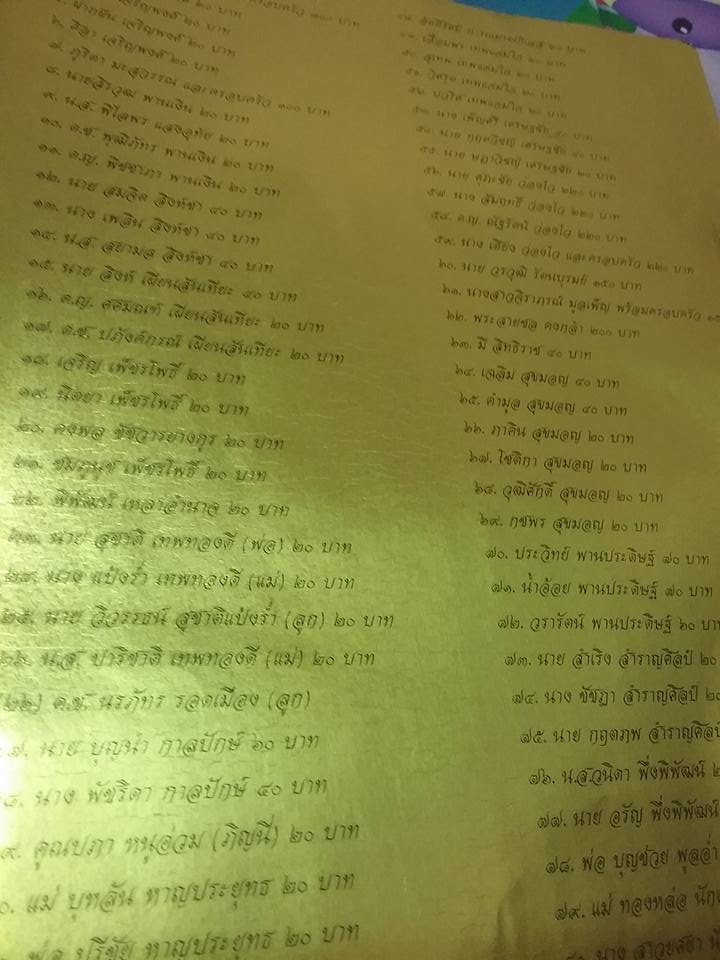 เจริญพงศ์ ๒๐ บาท
เจริญพงศ์ ๒๐ บาท
๖. เจริญพงศ์ ๒๐ บาท
๗. ภูริดา มะสุวรรณ และครอบครัว ๑๐๐ บาท
๘. นายสิรวุฒ พานเงิน ๒๐ บาท
๙. น.ส. พิไลพร แสงอุทัย ๒๐ บาท
๑๐. ด.ช. พุฒิภัทร พานเงิน ๒๐ บาท
๑๑. ด.ญ. พิชชาภา พานเงิน ๒๐ บาท
๑๒. นาย สมจิต สิงห์ชา ๔๐ บาท
๑๓. นาง เพลิน สิงห์ชา ๔๐ บาท
๑๔. น.ส. สยามล สิงห์ชา ๔๐ บาท
๑๕. นาย สิงห์ เผียนสันเทียะ ๔๐ บาท
๑๖. ด.ญ. เผียนสันเทียะ ๒๐ บาท
๑๗. ด.ช. ปภังค์กรณ์ เผียนสันเทียะ ๒๐ บาท
๑๘. เจริญ เพ็ชรโพธิ์ ๒๐ บาท
๑๙. นิตยา เพ็ชรโพธิ์ ๒๐ บาท
๒๐. คงพล ชัชวารยางกูร ๒๐ บาท
๒๑. ชมภูนุช เพ็ชรโพธิ์ ๒๐ บาท
๒๒. พิพัฒน์ เหลาอำนาจ ๒๐ บาท
๒๓. นาย สุชาติ เทพทองดี (พ่อ) ๒๐ บาท
๒๔. นาง แป้งร่ำ เทพทองดี (แม่) ๒๐ บาท
๒๕. นาย วิวรรธน์ สุชาติแป้งร่ำ (ลูก) ๒๐ บาท
๒๖. น.ส. ปาริชาติ เทพทองดี (แม่) ๒๐ บาท
ด.ช. นรภัทร รอดเมือง (ลูก)
๗. นาย บุญนำ กาลปักษ์ ๖๐ บาท
๘. นาง พัชริดา กาลปักษ์ ๔๐ บาท
๙. คูณปภา หนูอ่วม (ภิญนี่) ๒๐ บาท
๐. แม่ บุหลัน หาญประยุทธ ๒๐ บาท
พ่อ ปรีชัย หาญประยุทธ ๒๐ บาท
๒๐ บาท
เทพแสมไล ๒๐ บาท
๕๐. สุเทพ เทพแสมไล ๒๐ บาท
๕๑. เทพแสมไล ๒๐ บาท
๕๒. เทพแสมไล ๒๐ บาท
๕๓. นาง เพ็ญศรี เศรษฐชัย ๔๐ บาท
๕๔. นาย เศรษฐชัย ๔๐ บาท
๕๕. นาย เศรษฐชัย ๒๐ บาท
๕๖. นาย ศุภะชัย ว่องไว ๒๒๐ บาท
๕๗. นาง สัมฤทธิ์ ว่องไว ๒๒๐ บาท
๕๘. ด.ญ. ณัฐรัตน์ ว่องไว ๒๒๐ บาท
๕๙. นาง เตียง ว่องไว และครอบครัว ๒๒๐ บาท
๖๐. นาย วรวุฒิ รัตนบุรมย์ ๑๕๐ บาท
๖๑. นางสาวสิราภรณ์ มูลเพ็ญ พร้อมครอบครัว
๖๒. พระสายชล คงกล้า ๒๐๐ บาท
๖๓. มี สิทธิราช ๔๐ บาท
๖๔. เฉลิม สุขมอญ ๔๐ บาท
๖๕. คำมูล สุขมอญ ๔๐ บาท
๖๖. ภาคิน สุขมอญ ๒๐ บาท
๖๗. โชติกา สุขมอญ ๒๐ บาท
๖๘. วุฒิศักดิ์ สุขมอญ ๒๐ บาท
๖๙. กชพร สุขมอญ ๒๐ บาท
๗๐. ประวิทย์ พานประดิษฐ์ ๗๐ บาท
๗๑. น้ำอ้อย พานประดิษฐ์ ๗๐ บาท
๗๒. วรารัตน์ พานประดิษฐ์ ๖๐ บาท
๗๓. นาย สำเริง สำราญศิลป์ ๒๐
๗๔. นาง ชัชฎา สำราญศิลป์ ๒๐
๗๕. นาย กฤตภพ สำราญศิลป์
๗๖. น.ส.วนิดา พึ่งพิพัฒน์
๗๗. นาย อรัญ พึ่งพิพัฒน์
๗๘. พ่อ บุญช่วย พูลอ่ำ
๗๙. แม่ ทองหล่อ
นาง